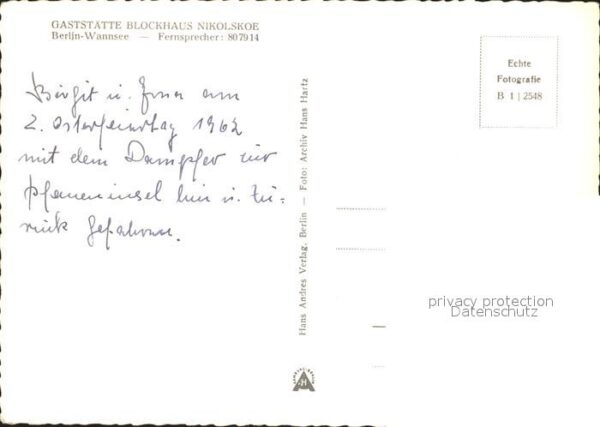 GASTSTÄTTE BLOCKHAUS NIKOLSKOE
Berlin-Wannsee — Fernsprecher: 807914
Birgit u. am
2. Osterfeiertag 1962
mit dem Dampfer zur
Pfaueninsel hin u. zu-
rück gefahren.
Hans Andres Verlag, Berlin — Foto: Archiv Hans Hartz
Echte
Fotografie
B 1 | 2548
privacy protection
Datenschutz